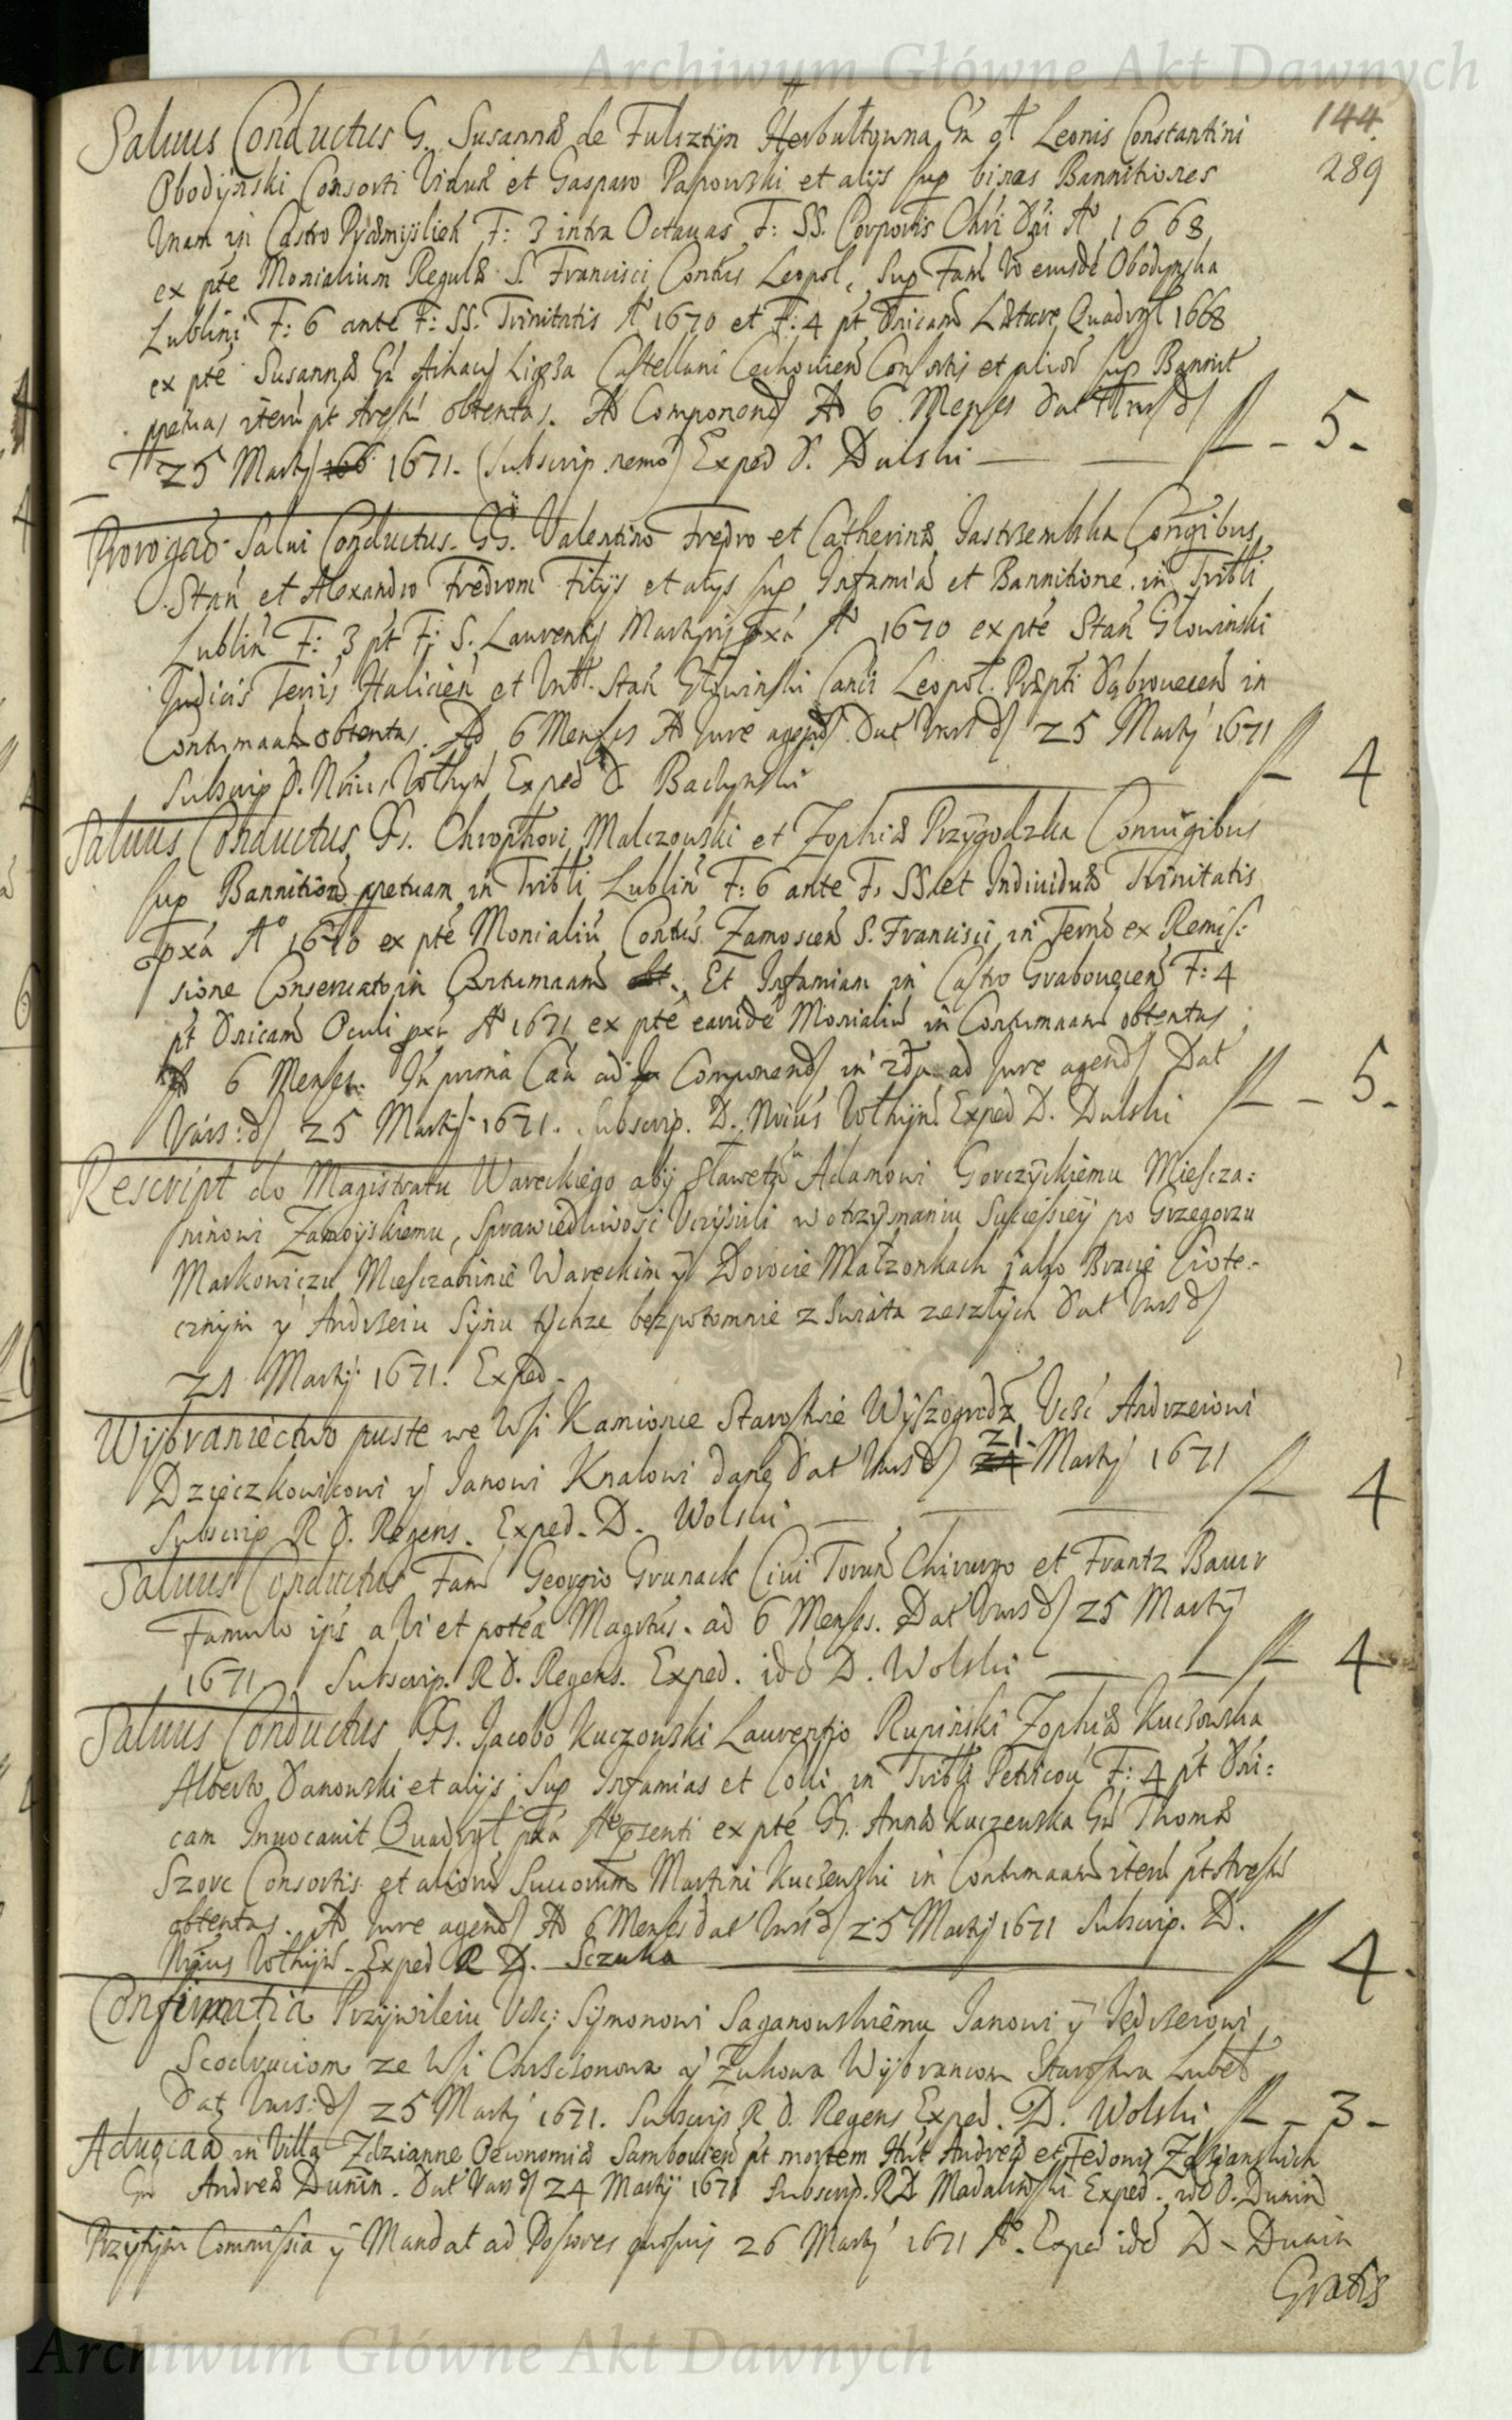 Archiwum Główne Akt Dawnych
144.
289
Salvus Conductus G. Susannæ de Fulsztyn Herbultowna Gn̄ ol̄ Leonis Constantini
Obodynski Consorti Viduæ et Gasparo Papowski et alijs sup binas Bannitiones
Unam in Castro Præmislień F: 3 intra Octavas F: SS. Corporis Chri Dni Aº 1668
ex pte Monialium Regulæ S. Francisci Contus Leopol. sup Fam Vo eiusde Obodynska
Lublini F: 6 ante F: SS. Trinitatis Aº 1670 et F: 4 pt Dnicam Lætare Quadrgl 1668
ex pte Susannæ Gn̄ Ligęza Castellani Cechovień Consortis et alior sup Bannit
ppetuas item pt Arest obtentas. Ad Componend Ad 6 Menses Dat Vars d
25 Martij 1671. (Subscrip. nemo) Exped D. Dulski — — fl - 5 -
Prorogao Salvi Conductus. GG. Valentino Fredro et Catherinæ Jastrzembska Coniugibus
Stań et Alexandro Fredrom Filijs et alijs sup Infamia et Bannitione in Tribli
Lublin F: 3 pt F: S. Laurentij Martyris pxa Aº 1670 ex pte Stań Glowinski
Judicis Terris Halicień et Vnbl. Stań Glowinski Canci Leopol. Præpti Dąbrovecen in
Contumaam obtentas. Ad 6 Menses Ad Jure agend Dat Vars d 25 Martij 1671 fl 4
Subscrip D. Nrius Vołhyn Exped D. Baclynski
Salvus Conductus GG. Chropthori Malczowski et Zophiæ Przygodzka Coniugibus
sup Bannitione ppetuam in Tribli Lublin F: 6 ante F: SS. et Individuæ Trinitatis
pxa Aº 1670 ex pte Monialiu Contus Zamoscen S. Francisci in Termo ex Remis:
sione Conservato in Contumaam Et Infamiam in Castro Grabovecen F: 4
pt Dnicam Oculi pxa Aº 1671 ex pte earude Monialiu in Contumaam obtentas
Ad 6 Menses. In prima Caa ad Componend in 2da ad Jure agend Dat
Vars: d 25 Martij 1671. Subscrip. D. Nrius Vołhyn Exped D. Dulski fl - 5 -
Rescript do Magistratu Wareckiego aby Sławetn Adamowi Gorczyckiemu Miescza:
ninowi Zamoyskiemu, Sprawiedliwosc Vczynili w otrzymaniu Sukcessiey po Grzegorzu
Markowiczu Miesczaninie Wareckim y Dorocie Małzonkach jako Bracie Ciote:
cznym y Andrzeiu Synu tychze bezpotomnie z Swiata zeszłych Dat Vars d
21 Martij 1671. Exped.
Wybraniectwo puste we Wsi Kamionce Starostwie Wyszogrodz Vczc Andrzeiowi
Dzięczkowicowi y Janowi Knalowi dane Dat Vars d 21. Martij 1671 fl 4
Subscrip R D. Regens. Exped. D. Wolski
Salvus Conductus Fam Georgio Grunack Civi Torun Chirurgo et Frantz Baur
Famulo ips a Vi et potea Magrtus. ad 6 Menses. Dat Vars d 25 Martij
1671. Subscrip. R D. Regens. Exped. ide D. Wolski — — fl 4
Salvus Conductus GG. Jacobo Kuczowski Laurentio Rupinski Zophiæ Kuczowska
Alberto Danowski et alijs sup Infamias et Coni in Tribli Petricou F: 4 pt Dni:
cam Invocavit Quadrgl pxa Aº psenti ex pte GG. Annæ Kuczewska Gn̄ Thomæ
Szorc Consortis et aliorū Succorum Martini Kuczewski in Contumaam item pt Arest
obtentas. Ad Jure agend Ad 6 Menses dat Vars d 25 Martij 1671 Subscrip. D.
Nrius Vołhyn. Exped R D. Sczuka — fl 4.
Confirmatia Przywileiu Vczc: Symonowi Saganowskiemu Janowi y Jędrzeiowi
ze Wsi Chrscionowa y Zukowa Wybrancom Starostwa Lubel
Dat Vars: d 25 Martij 1671. Subscrip R D. Regens Exped. D. Wolski fl - 3 -
Advocaa in Villa Zdzianne Oeconomiæ Samborien pt mortem Hut Andreæ et Fedoni Zdzianskich
Gn̄ Andreæ Dunin. Dat Vars d 24 Martij 1671 Subscrip. RD Madalinski Exped. ide D. Dunin
Przytym Commissia y Mandat ad Possores 26 Martij 1671 Aº. Exped ide D. Dunin
Gratis
Archiwum Główne Akt Dawnych